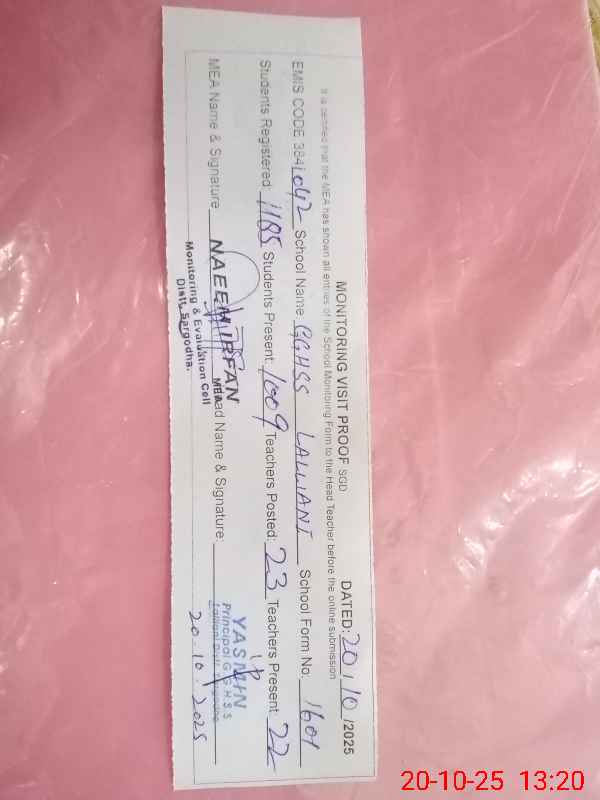 MONITORING VISIT PROOF SGD DATED: 20/10/2025
It is certified that the MEA has shown all entries of the School Monitoring Form to the Head Teacher before the online submission
EMIS CODE 3841042 School Name GGHSS LALLIANI School Form No. 1601
Students Registered: 1185 Students Present: 1009 Teachers Posted: 23 Teachers Present: 22
MEA Name & Signature NAEEM IRFAN ad Name & Signature:
MEA
Monitoring & Evaluation Cell
Distt. Sargodha.
YASMIN
Principal G.G.H.S.S
Lalliani Distt. Sargodha
20.10.2025
20-10-25 13:20